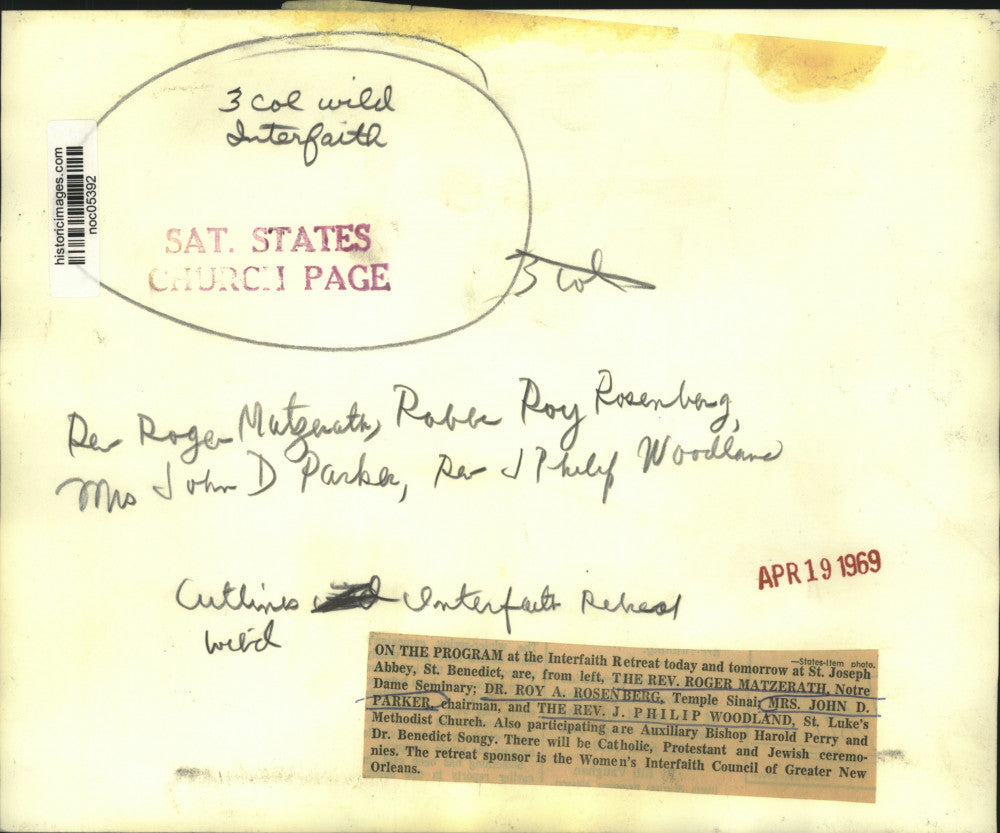 3 col wild
Interfaith
historicimages.com
noc05392
SAT. STATES
CHURCH PAGE
3 col
Rev Roger Matzerath, Rabbi Roy Rosenberg,
Mrs John D Parker, Rev J Philip Woodland
APR 19 1969
Cutlines Interfaith Retreat
wild
—States-Item photo.
ON THE PROGRAM at the Interfaith Retreat today and tomorrow at St. Joseph
Abbey, St. Benedict, are, from left, THE REV. ROGER MATZERATH, Notre
Dame Seminary; DR. ROY A. ROSENBERG, Temple Sinai; MRS. JOHN D.
PARKER, chairman, and THE REV. J. PHILIP WOODLAND, St. Luke's
Methodist Church. Also participating are Auxiliary Bishop Harold Perry and
Dr. Benedict Songy. There will be Catholic, Protestant and Jewish ceremo-
nies. The retreat sponsor is the Women's Interfaith Council of Greater New
Orleans.